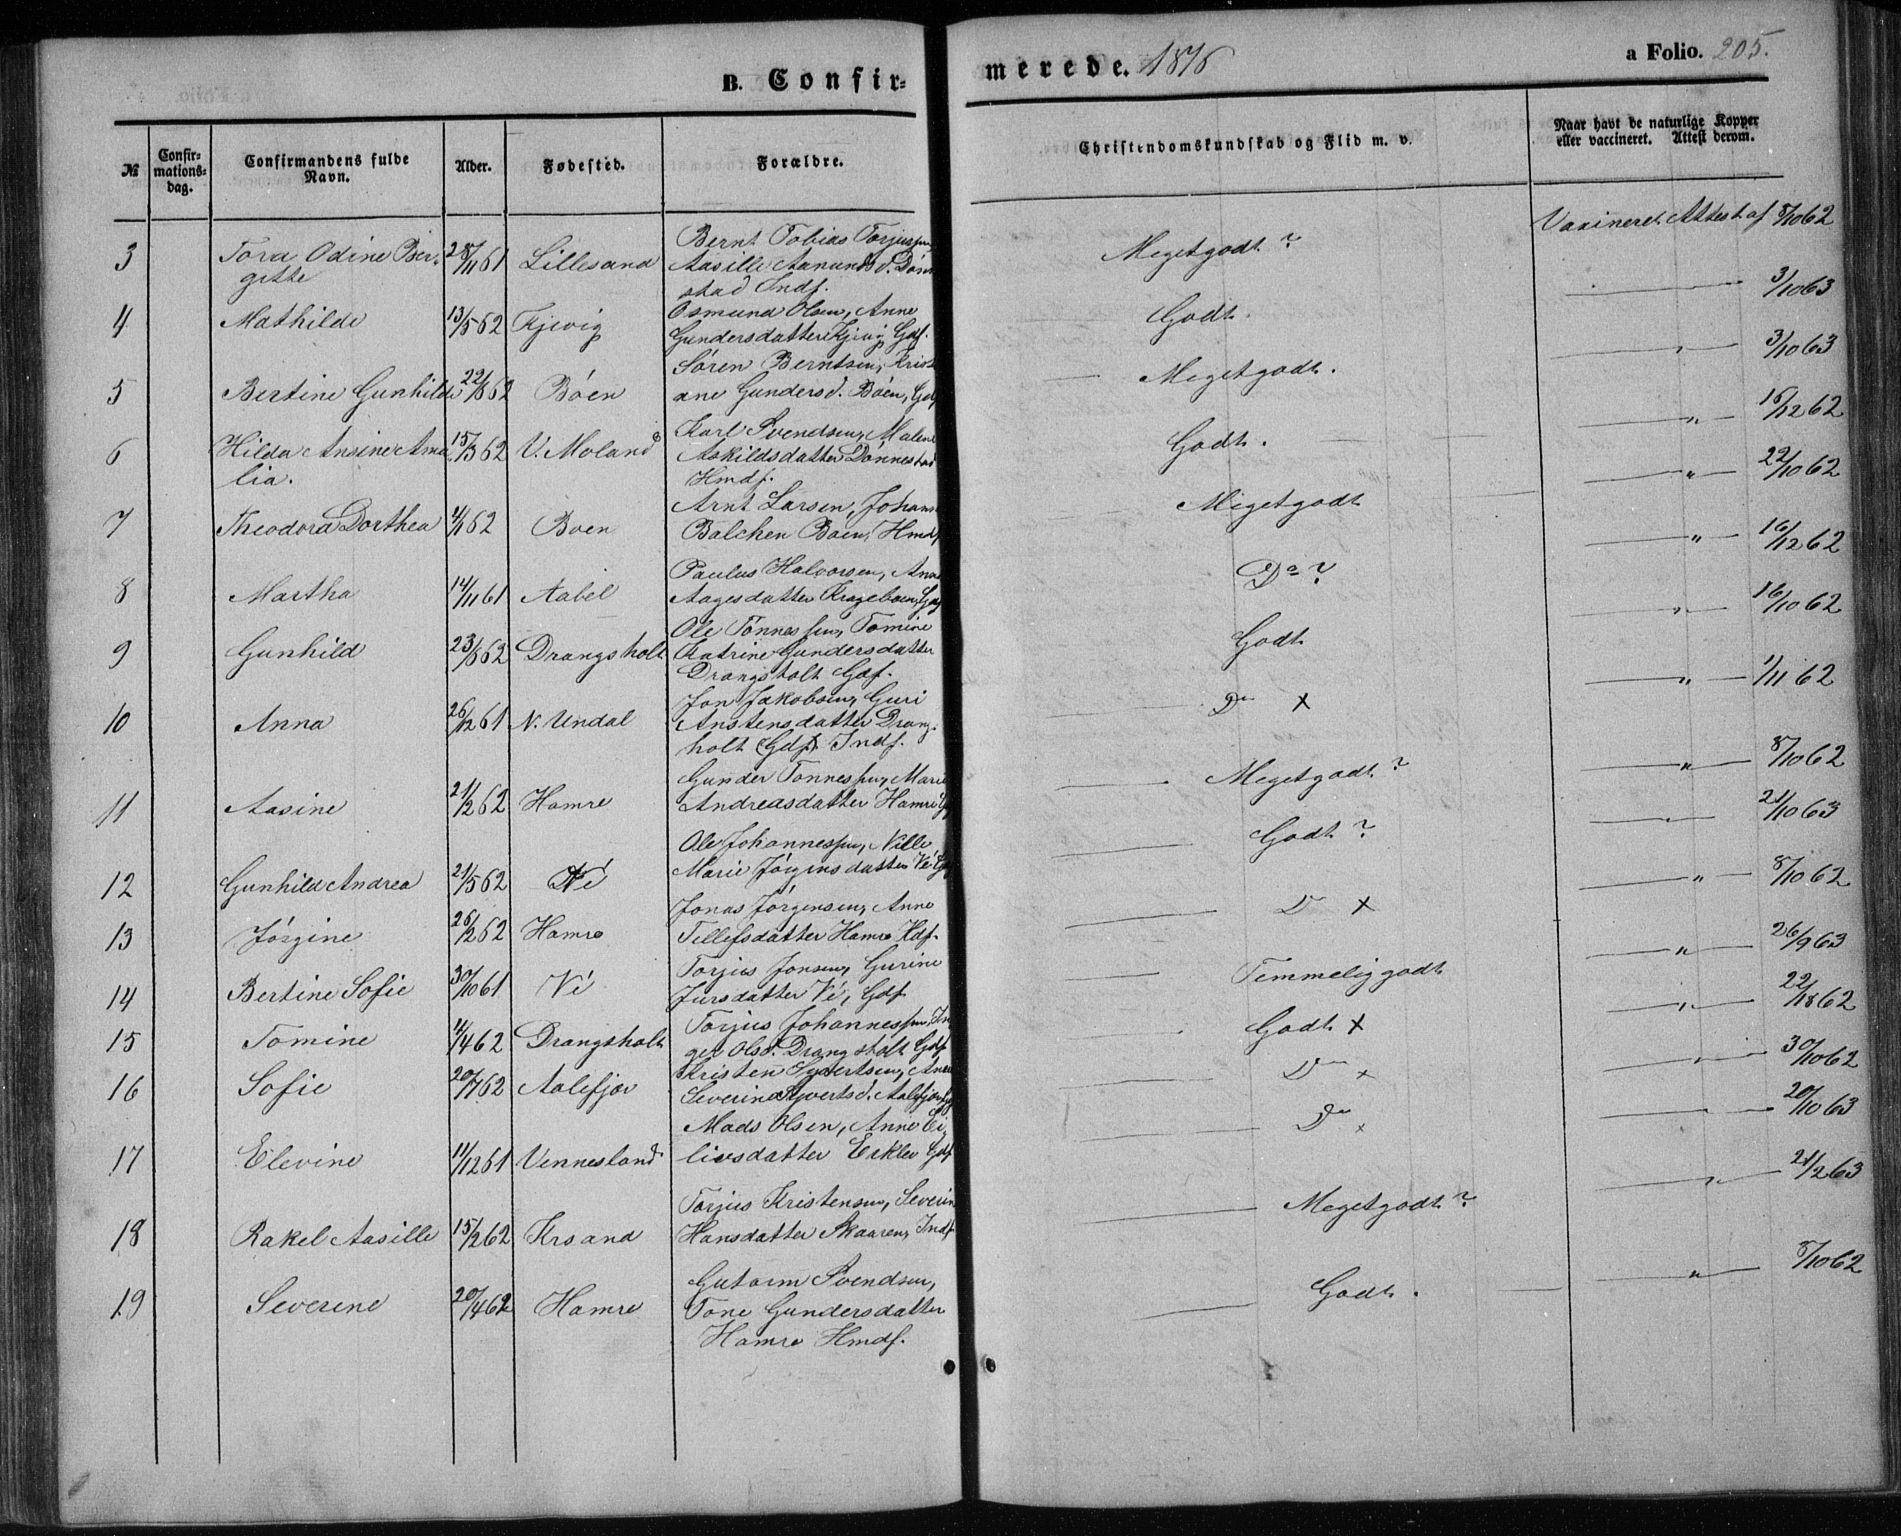 B. Confir-
merede. 1876
a Folio. 205.
№
Confir-
mations-
dag.
Confirmandens fulde
Navn.
Alder.
Fødested.
Forældre.
Christendomskundskab og Flid m. v.
Naar havt de naturlige Kopper
eller vaccineret. Attest derom.
3 Tora Odine Ber- 28/11 61 Lillesand Bernt Tobias Torjussen Meget godt Vaxineret Attest af 8/10 62
gitte Aasille Aanunds d. Dønne
stad Indf.
4 Mathilde 13/5 62 Kjevig Osmund Olsen, Anne Godt. 3/10 63
Gundersdatter Kjevig Gdf.
5 Bertine Gunhilde 22/8 62 Bóen Søren Berntsen, Krist Meget godt. 3/10 63
ane Gundersd. Bóen, Gdf
6 Hilda Ansine Ama 15/3 62 V. Moland Karl Svendsen, Malene Godt. 18/12 62
lia. Askildsdatter Dønnestad
Hmdf.
7 Theodora Dorthea 4/1 62 Boen Arnt Larsen, Johann Meget godt 22/10 62
Balchen Boen, Hmdf
8 Martha 14/11 61 Aabel Paulus Halvorsen, Anne Do ? 16/12 62
Aagesdatter Krageboen, Gdf
9 Gunhild 23/8 62 Drangsholt Ole Tønnessen, Tomine Godt 16/10 62
Katrine Gundersdatter
Drangsholt Gdf.
10 Anna 26/12 61 N. Undal Jon Jakobsen, Guri Do x 1/11 62
Anstensdatter Drang-
holt (Gdf) Indf.
11 Aasine 21/2 62 Hamre Gunder Tønnessen, Marie Meget godt ? 8/10 62
Andreasdatter Hamre Gdf
12 Gunhild Andrea 21/5 62 Vé Ole Johannessen, Nille Godt ? 21/10 63
Marie Jørginsdatter Vé Gdf
13 Jørgine 26/2 62 Hamre Jonas Jørgensen, Anne D x 8/10 62
Tellefsdatter Hamre Hdf.
14 Bertine Sofie 30/10 61 Vé Torjus Jonsen, Gurine Temmelig godt 26/9 63
Jursdatter Vé, Gdf
15 Tomine 12/4 62 Drangsholt Torjus Johannessen, In Godt x 22/18 62
ger Olsd. Drangsholt Gdf
16 Sofie 20/7 62 Aalefjær Kristen Syvertsen, Anne D x 30/10 62
Severine Syvertsd. Aalefjær Gdf
17 Elevine 11/12 61 Vennesland Mads Olsen, Anne Ei- Do x 20/10 63
livsdatter Erklev Gdf
18 Rakel Aasille 15/2 62 Krsand Torjus Kristensen, Severin Meget godt ? 21/2 63
Hansdatter Skaaren, Indf
19 Severine 20/4 62 Hamre Gutorm Svendsen, Godt. 8/10 62
Tone Gundersdatter
Hamre Hmdf.